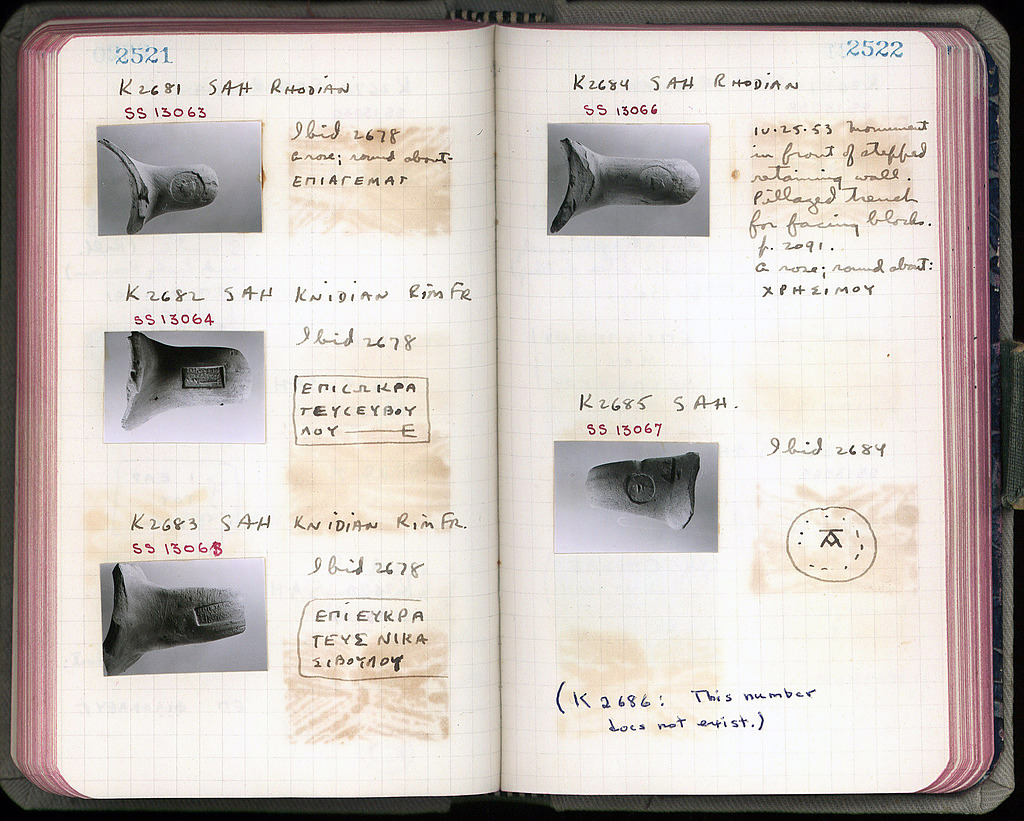 2521
K2681 SAH RHODIAN
SS 13063
Ibid 2678
a rose; round about-
ΕΠΙΑΓΕΜΑΓ
K2682 SAH KNIDIAN RIM FR
SS 13064
Ibid 2678
ΕΠΙCΩΚΡΑ
ΤΕΥCΕΥΒΟΥ
ΛΟΥ — Ε
K2683 SAH KNIDIAN RIM FR.
SS 13065
Ibid 2678
ΕΠΙ ΕΥΚΡΑ
ΤΕΥΣ ΝΙΚΑ
ΣΙΒΟΥΛΟΥ
2522
K2684 SAH RHODIAN
SS 13066
IV.25.53 Monument
in front of stepped
retaining wall.
Pillaged trench
for facing blocks.
p. 2091.
a rose; round about:
ΧΡΗΣΙΜΟΥ
K2685 SAH.
SS 13067
Ibid 2684
(K 2686: This number
does not exist.)